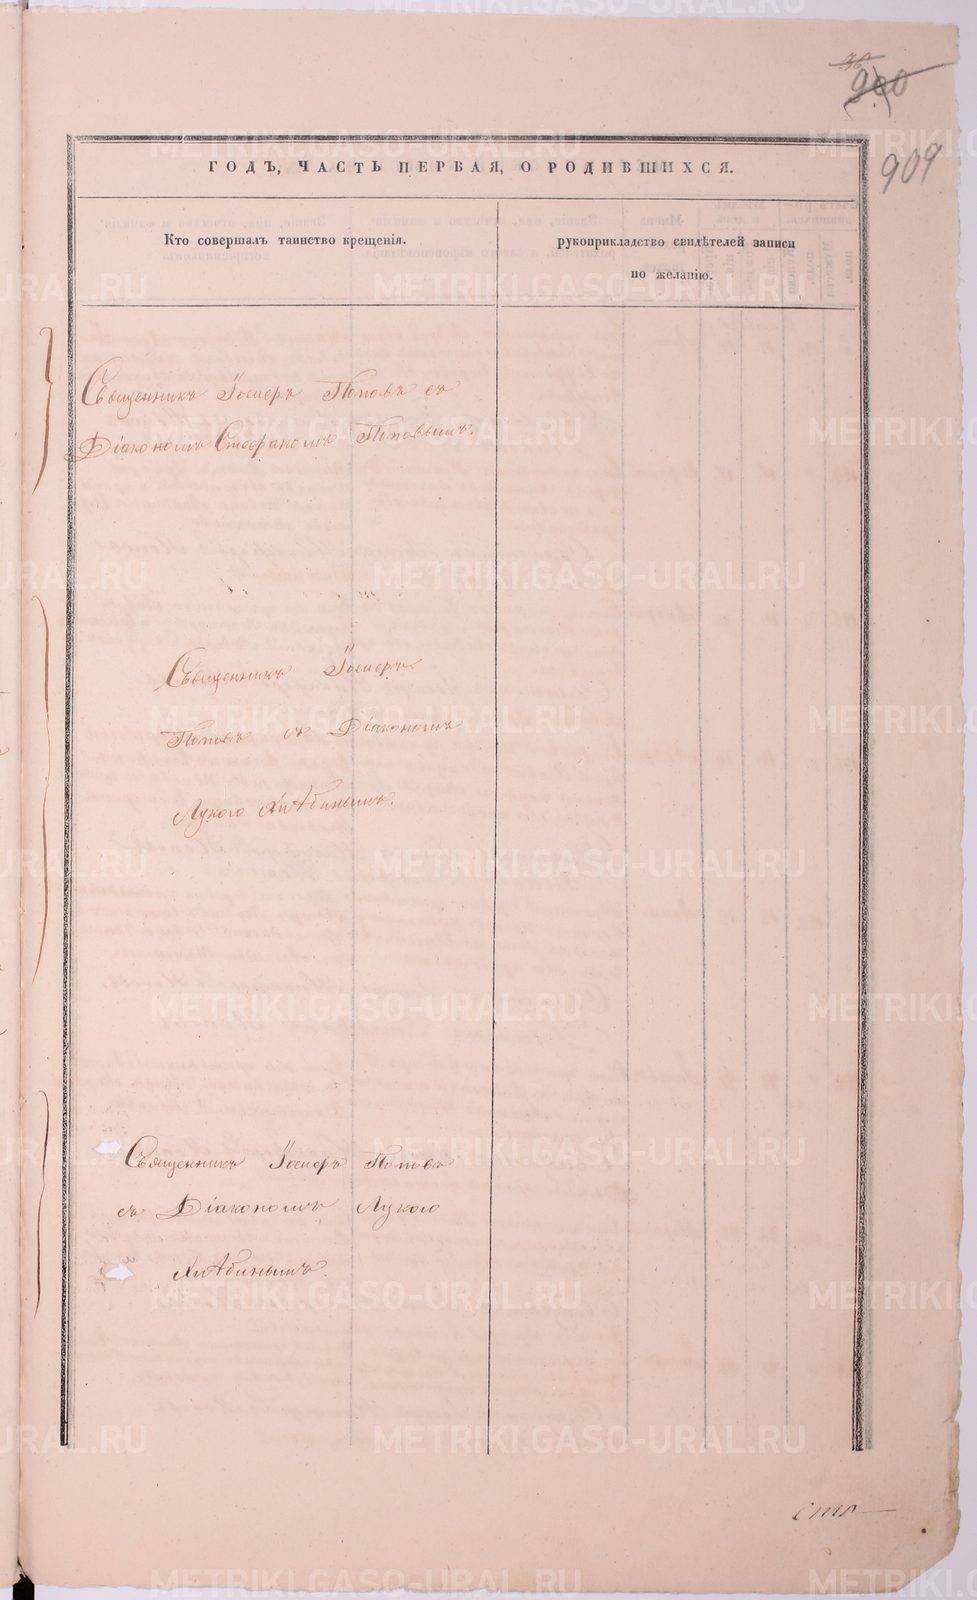 900
909
ГОДЪ, ЧАСТЬ ПЕРВАЯ, О РОДИВШИХСЯ.
Кто совершалъ таинство крещенія.
рукоприкладство свидѣтелей записи
по желанію.
Священникъ Іосифъ Поповъ съ
Діакономъ Стефаномъ Поповымъ.
Священникъ Іосифъ
Поповъ съ Діакономъ
Лукою Хлѣбинымъ.
Священникъ Іосифъ Поповъ
съ Діакономъ Лукою
Хлѣбинымъ.
METRIKI.GASO-URAL.RU